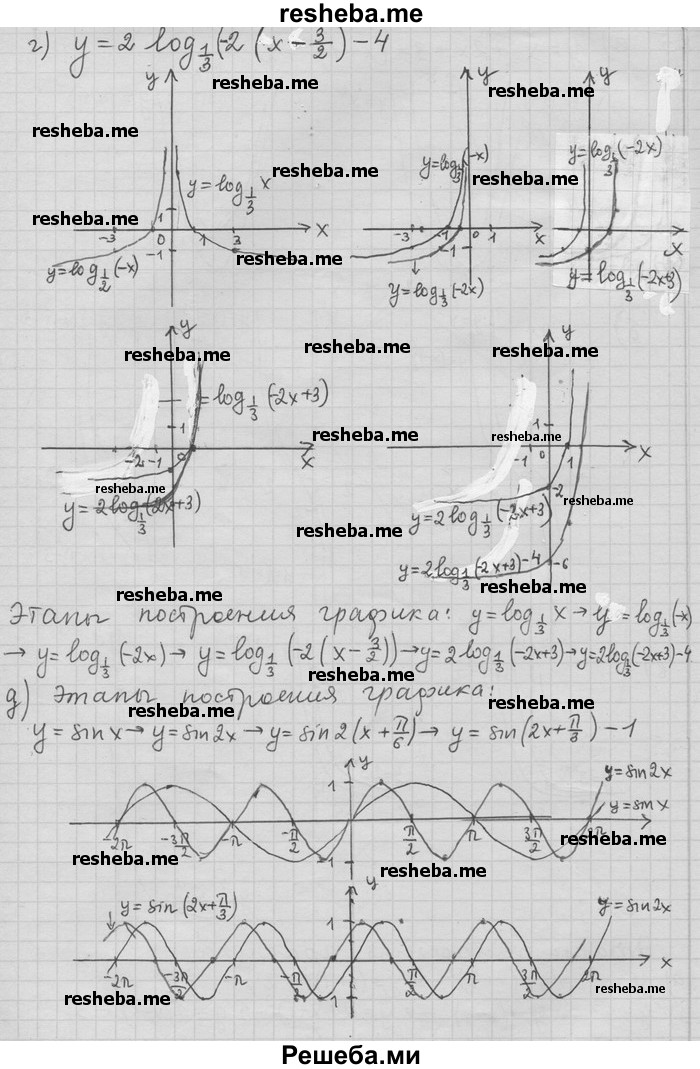 resheba.me
г) y = 2 log_{1/3}(-2(x - 3/2) - 4
resheba.me
resheba.me
resheba.me
resheba.me
resheba.me
resheba.me
resheba.me
y
y = log_{1/3} x
1
-3
0
1
3
x
-1
y = log_{1/2}(-x)
y
y = log_{1/3}(-x)
-3
-1
0
1
x
-1
y = log_{1/3}(-2x)
y
y = log_{1/3}(-2x)
x
y = log_{1/3}(-2x+3)
resheba.me
resheba.me
resheba.me
y
= log_{1/3}(-2x+3)
1
-2
-1
0
x
resheba.me
y = 2log_{1/3}(2x+3)
resheba.me
resheba.me
y
1
resheba.me
-1
0
1
x
-2
resheba.me
y = 2log_{1/3}(-2x+3)
y = 2log_{1/3}(-2x+3)-4
-6
resheba.me
resheba.me
Этапы построения графика: y = log_{1/3} x → y = log_{1/3}(-x)
→ y = log_{1/3}(-2x) → y = log_{1/3}(-2(x - 3/2)) → y = 2log_{1/3}(-2x+3) → y = 2log_{1/3}(-2x+3)-4
resheba.me
g) Этапы построения графика:
resheba.me
resheba.me
y = sin x → y = sin 2x → y = sin 2(x + π/6) → y = sin(2x + π/3) - 1
y
1
y = sin 2x
y = sin x
-2π
-3π/2
-π
-π/2
π/2
π
3π/2
2π
-1
resheba.me
resheba.me
resheba.me
y
y = sin(2x + π/3)
1
y = sin 2x
-2π
-3π/2
-π
-π/2
π/2
π
3π/2
2π
x
-1
resheba.me
resheba.me
resheba.me
Решеба.ми